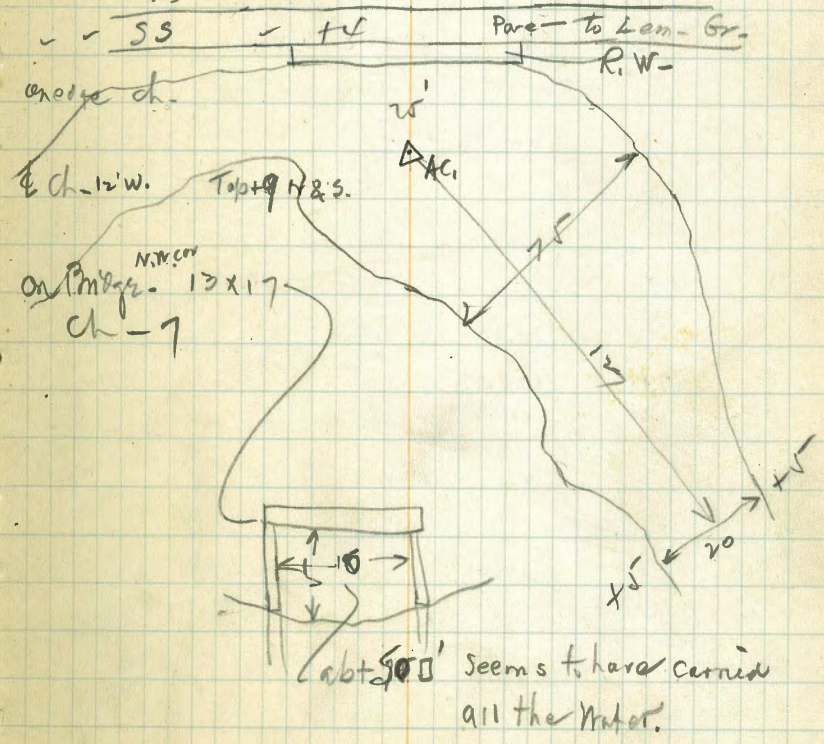 SS - +4 Pave — to Lem- Gr-
R.W-
on edge ch-
25'
AC,
℄ Ch-12'W.
Top+9 N&S.
75
N.W.cor
on Bridge. 13 x 17
Ch - 7
12
+5
20
+5
abt 50□' seems to have carried
all the water.